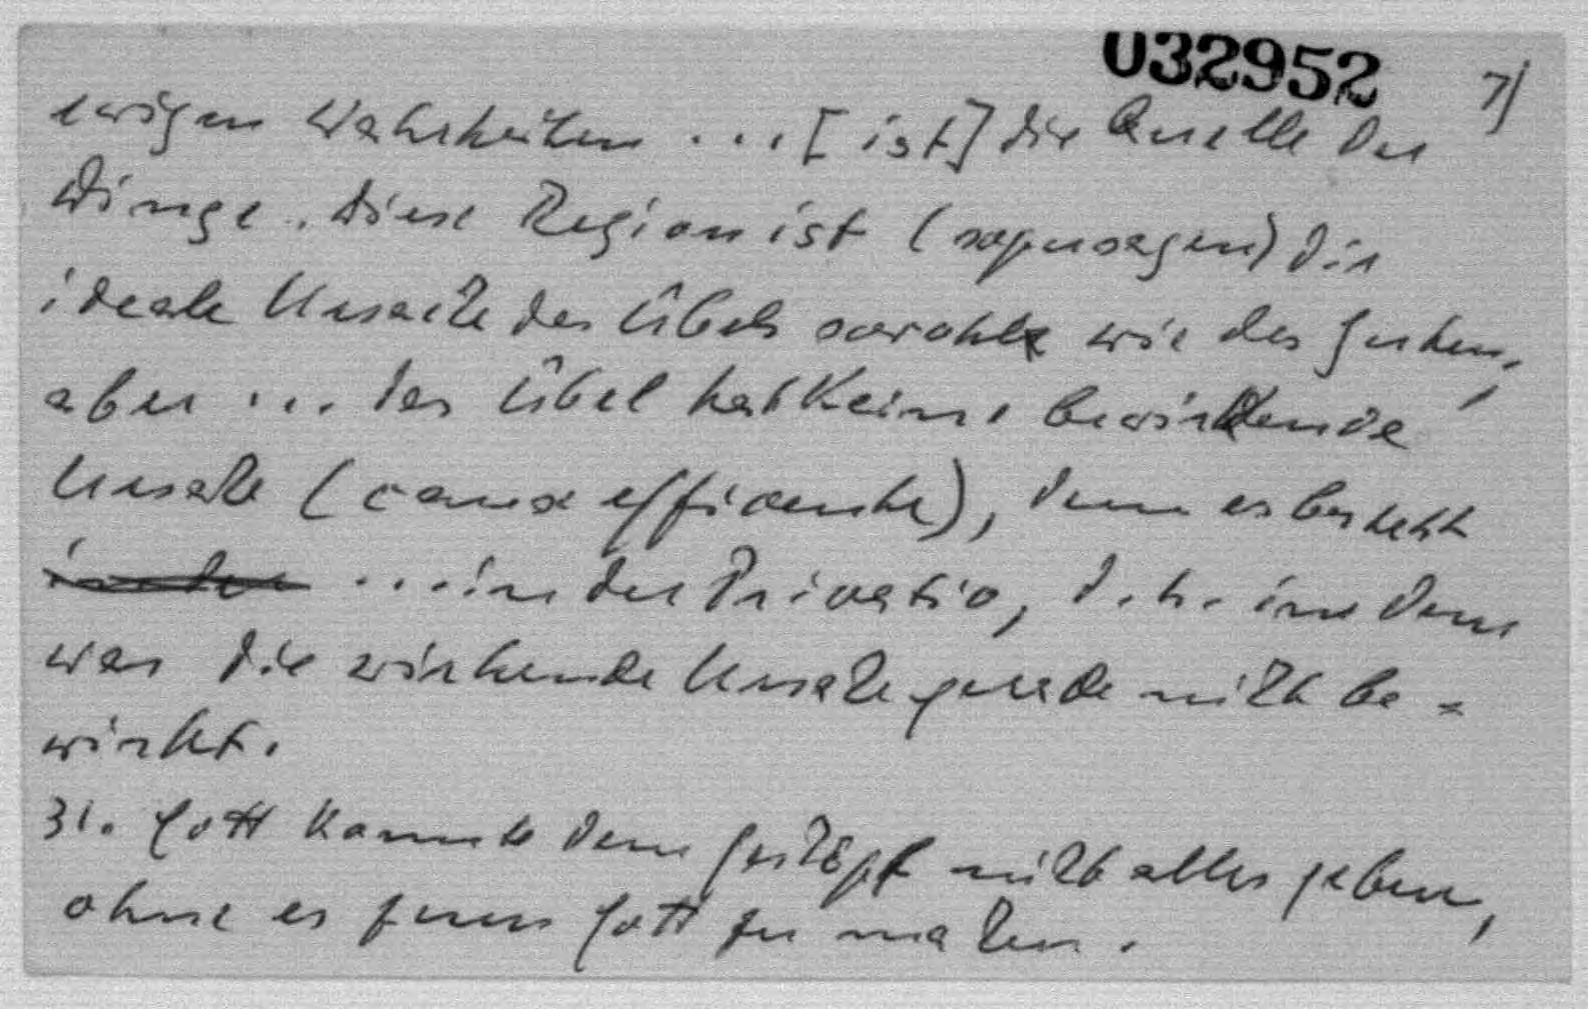 032952 7)
ewigen Wahrheiten ... [ist] die Quelle der
Dinge. Diese Region ist (sozusagen) die
ideale Ursache des Übels sowohl wie des Guten,
aber ... das Übel hat keine bewirkende
Ursache (causa efficiente), denn es besteht
... in der Privatio, d.h. in dem
was die wirkende Ursache gerade nicht be-
wirkt.
31. Gott konnte dem Geschöpf nicht alles geben,
ohne es zum Gott zu machen.